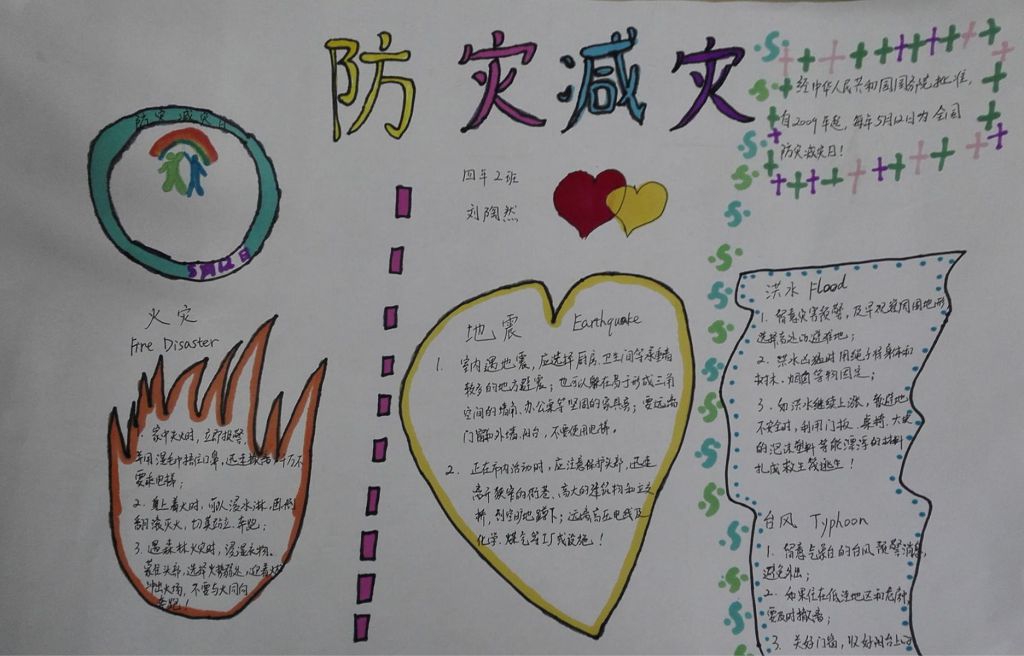 防灾减灾
经中华人民共和国国务院批准,
自2009年起,每年5月12日为全国
防灾减灾日!
防灾减灾日
5月12日
四年2班
刘陶然
火灾
Fire Disaster
1. 家中失火时,立即报警,
用湿毛巾捂住口鼻,迅速撤离,千万不
要乘电梯;
2. 身上着火时,可以浇水淋、
翻滚灭火,切莫站立、奔跑;
3. 遇森林火灾时,浸湿衣物、
蒙住头部,选择火势弱处,迎着火
冲出火海,不要与火同向
奔跑!
地震 Earthquake
1. 室内遇地震,应选择厨房、卫生间等承重墙
较多的地方避震;也可以躲在易于形成三角
空间的墙角、办公桌等坚固的家具旁;要远离
门窗和外墙、阳台,不要使用电梯。
2. 正在市内活动时,应注意保护头部,迅速
离开狭窄的街巷、高大的建筑物和立交
桥,到空旷地蹲下;远离高压电线及
化学、煤气等工厂或设施!
洪水 Flood
1. 留意灾害预警,及早观察周围地形,
选择高处的避难地;
2. 洪水凶猛时用绳子将身体和
树木、烟囱等物固定;
3. 如洪水继续上涨,暂避地
不安全时,利用门板、桌椅、大块
的泡沫塑料等能漂浮的材料
扎成救生筏逃生!
台风 Typhoon
1. 留意气象台的台风预警消息,
避免外出;
2. 如果住在低洼地区和危房
要及时撤离;
3. 关好门窗,收好阳台上的